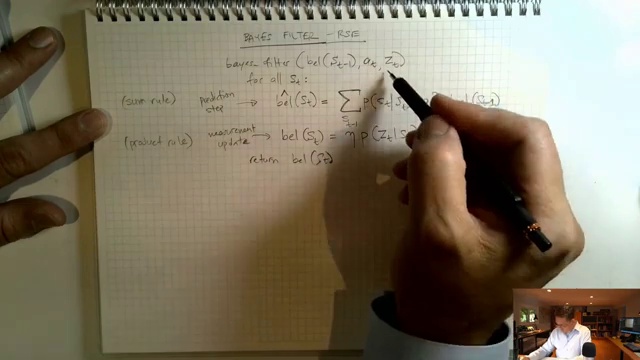 BAYES FILTER - RSE
bayes filter (bel(S_{t-1}), a_t, Z_t)
for all S_t:
(sum rule) prediction step → b̂el(S_t) = ∑_{S_{t-1}} p(S_t | S
(product rule) measurement update → bel(S_t) = η p(Z_t | S
return bel(S_t)